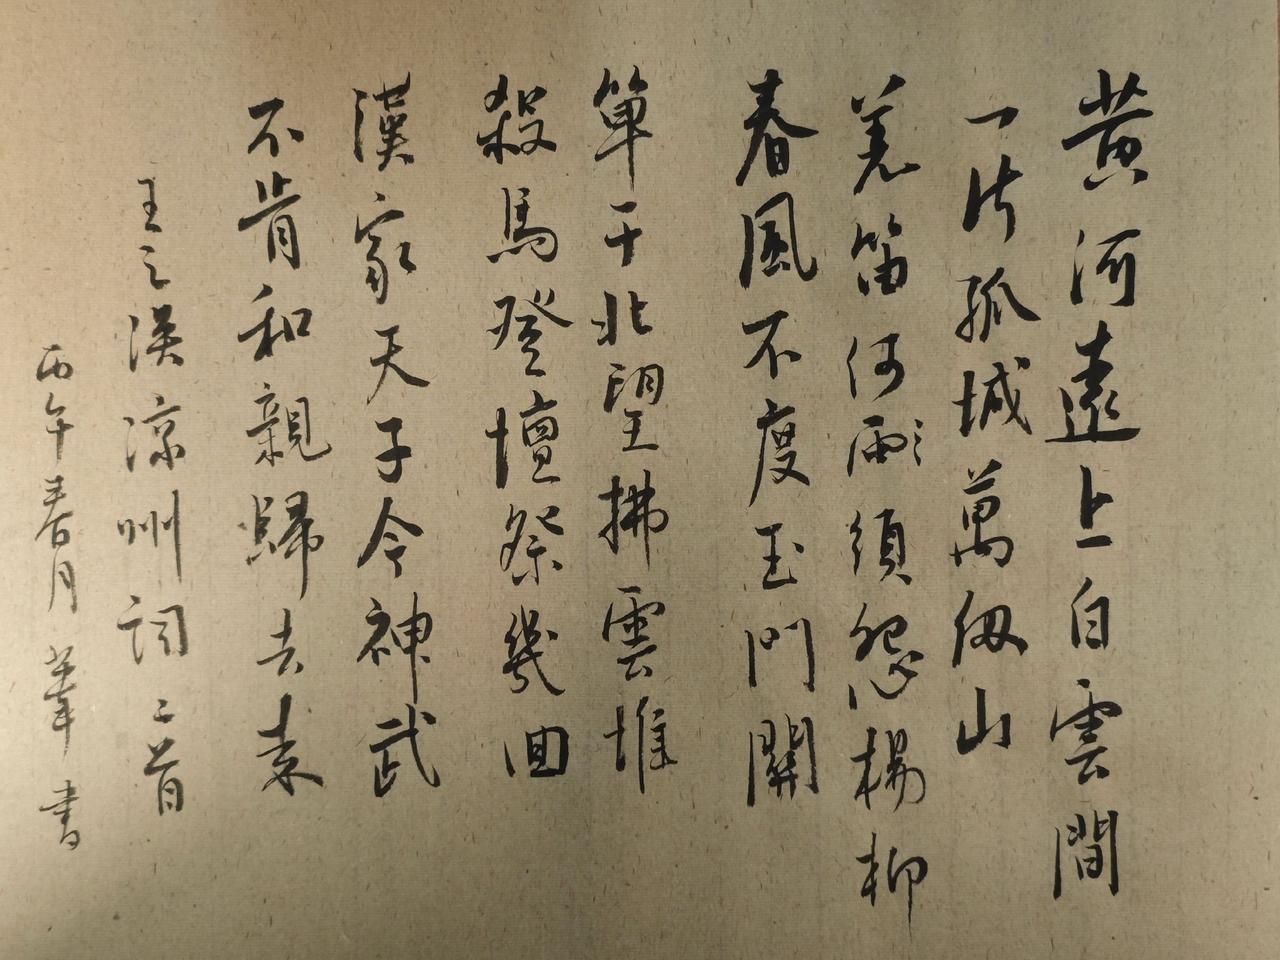 黄河遠上白雲間
一片孤城萬仞山
羌笛何雨須怨楊柳
春風不度玉門關
單于北望拂雲堆
殺馬登壇祭幾回
漢家天子今神武
不肯和親歸去來
王之渙涼州詞二首
丙午春月書